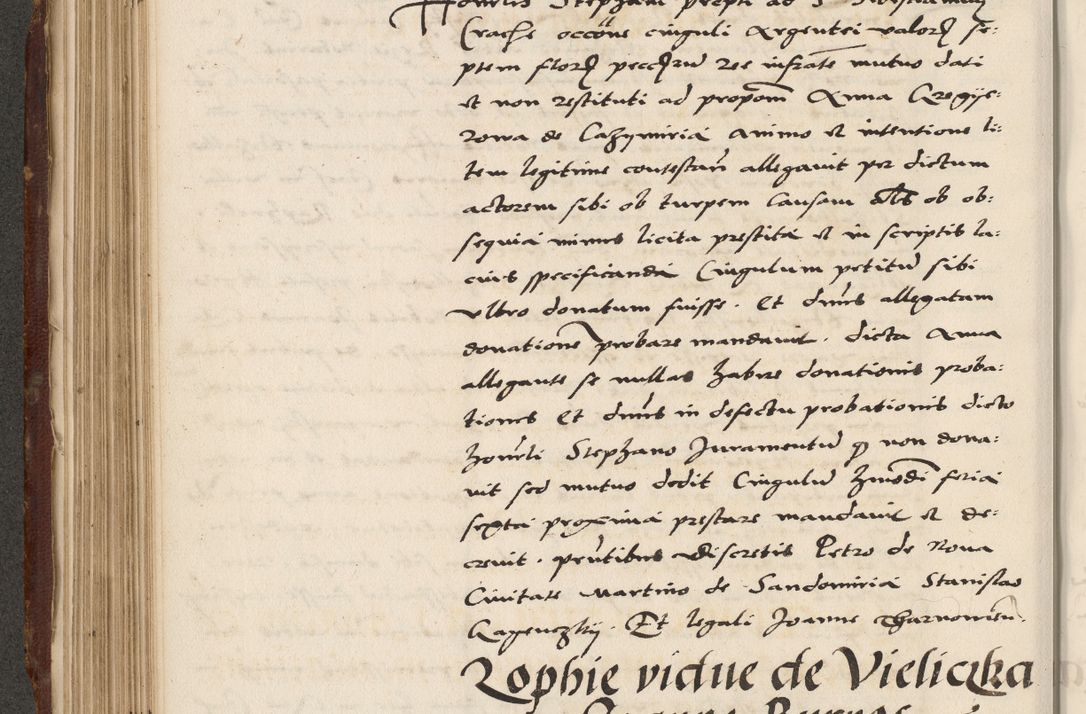 Honesti Stephani prepti ad S
Crache occone cinguli argentei valor se:
ptem flor pecc ree infrate mutuo dati
et non restituti ad propom Anna Gregije:
rowa de Cazymiria animo et intentione li:
tem legitime contestan allegavit per dictum
actorem sibi ob turpem causam als ob ob:
sequia minus licita prestita et in scriptis la:
cius specificanda Cingulum petitu sibi
ultro donatum fuisse. Et dnus allegatam
donatione probare mandavit. dicta Anna
allegante se nullas habere donationis proba:
tiones Et dnus in defectu probationis dicto
honesti Stephano Juramentu non dona:
vit sed mutuo dedit Cingulu feria
sexta proxima prestare mandavit et de:
crevit. prntibus discretis Petro de Nova
Civitate Martino de Sandomiria Stanislao
Et legali Joanne
Zophie vidue de Vieliczka